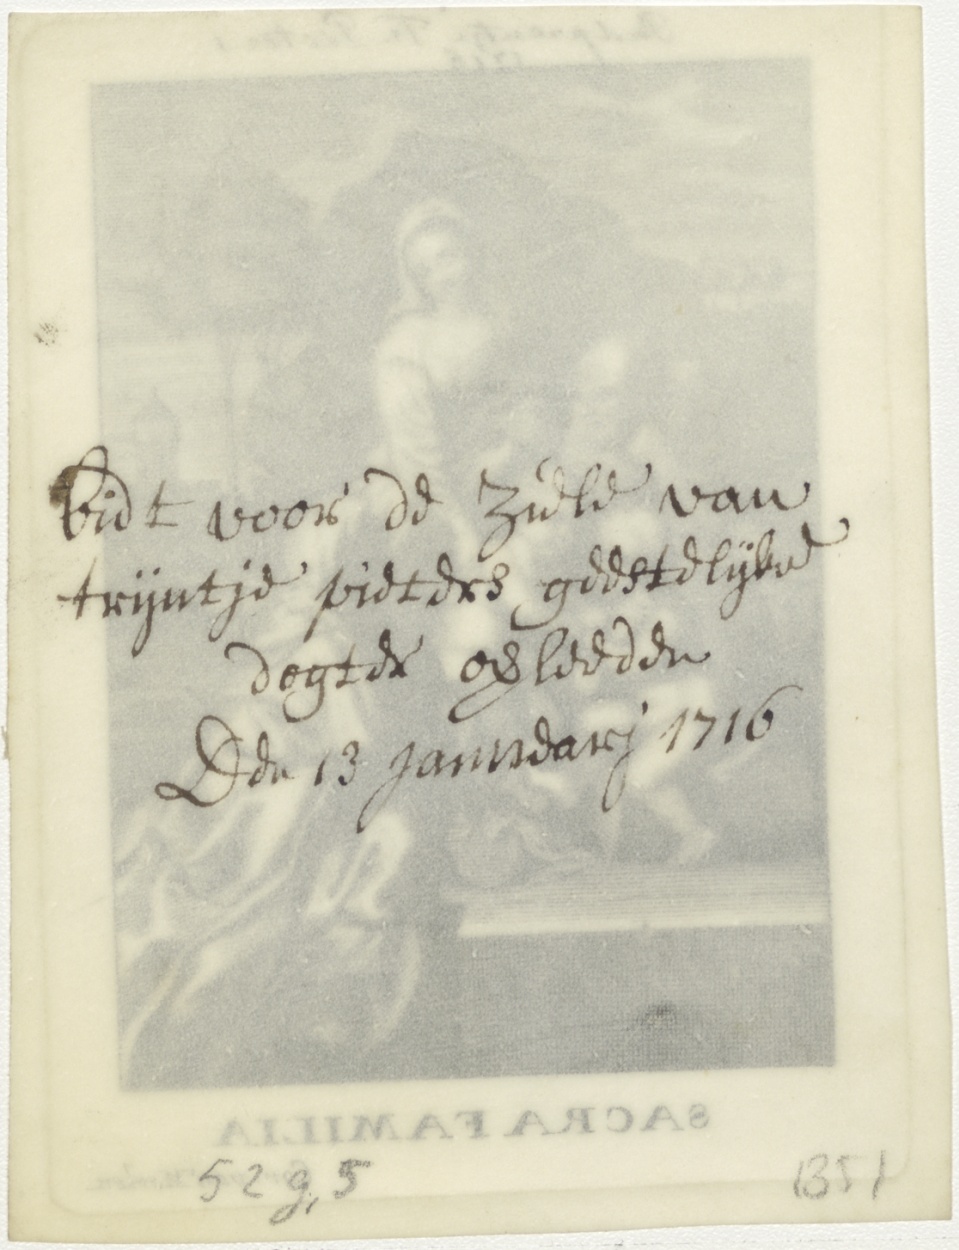 bidt voor de ziele van
trijntje pieters geestelijke
dogter oṽleeden
Den 13 januuarij 1716
SACRA FAMILIA
52g,5